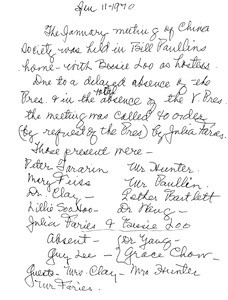 Jan 11-1970
The January meeting of China
Society was held in Bill Paullins
home - with Bessie Loo as hostess.
Due to a delayed absence of the
Pres. & in the total absence of the V. Pres.
the meeting was called to order
(by request of the Pres) by Julia Faries.
Those present were -
Peter Mr Hunter.
Mary Mr Paullin.
Dr Clay - Esther Bartlett
Lillie Soo Hoo - Dr Wong -
Julia Faries & Bessie Loo
Absent - Dr Yang -
Guy Lee - Grace Chow -
Guests - Mrs. Clay - Mrs Hunter
Mr Faries.